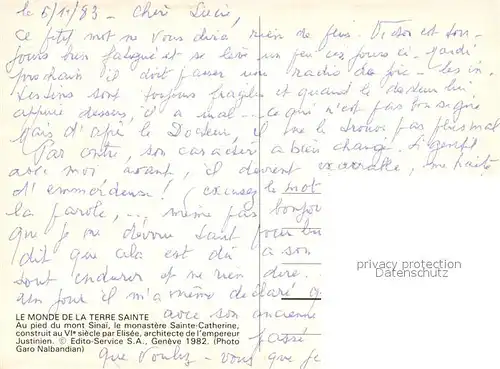 le 6/11/83 - Chère Lucie,
Ce petit mot ne vous dira rien de plus. est tou-
jours bien fatigué et se lève un peu ces jours ci - Mardi
prochain il doit passer une radio du foie - les in-
testins sont toujours fragiles et quand le docteur lui
appuie dessus, il a mal - ce qui n'est pas bon signe
Mais d'après le Docteur, il ne le trouve pas plus mal
Par contre, son caractère a bien changé. Si gentil
avec moi avant, il devient exécrable, me traite
d'emmerdeuse! (excusez le mot
la parole, ..., même pas bonjou
que je me dévoue tant pour lui
dit que cela est dû à son
tout endurer et ne rien dire.
un jour il m'a même déclaré q
avec son ancienne
passé
que voulez-vous que je
privacy protection
LE MONDE DE LA TERRE SAINTE
Au pied du mont Sinaï, le monastère Sainte-Catherine,
construit au VIe siècle par Elisée, architecte de l'empereur
Justinien. © Edito-Service S.A., Genève 1982. (Photo
Garo Nalbandian)